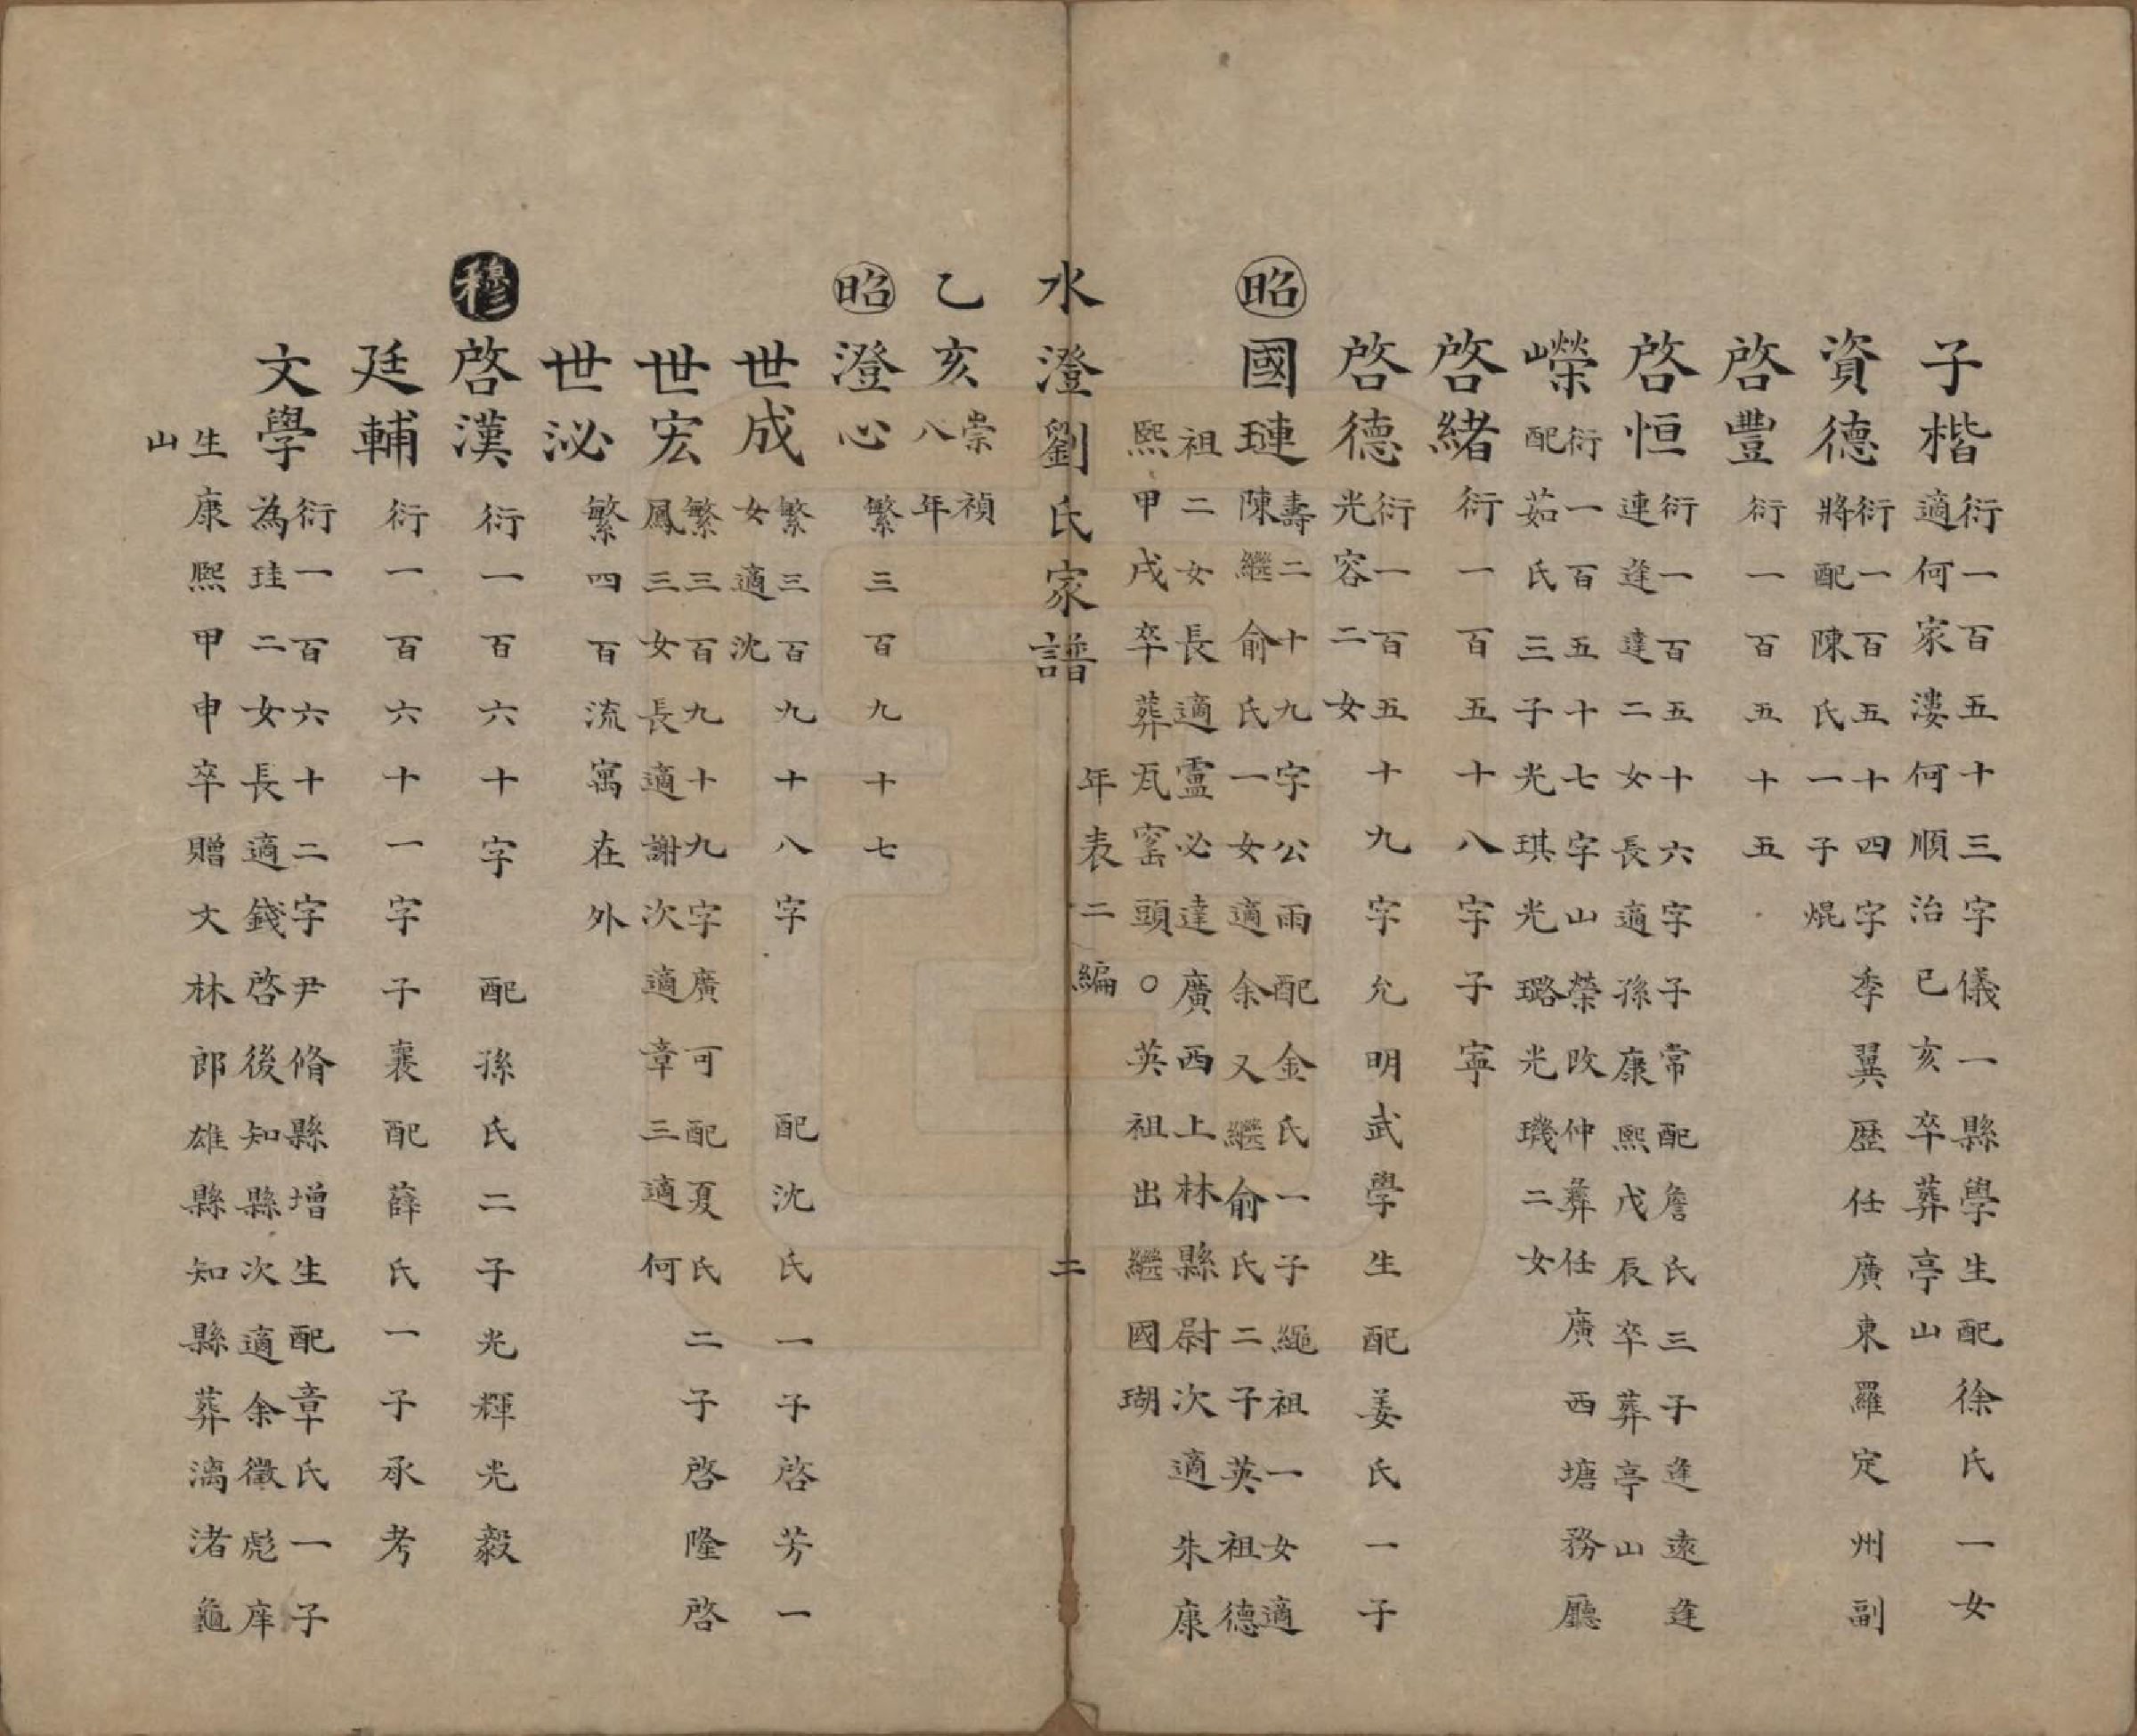 子楷衍一百五十三字儀一縣學生配徐氏一女
適何家漊何順治己亥卒葬亭山
資德衍一百五十四字季翼歷任廣東羅定州副
將配陳氏一子焜
啓豐衍一百五十五
啓恒衍一百五十六字子常配詹氏三子逢遠逢
連逢達二女長適孫康熙戊辰卒葬亭山
嶸衍一百五十七字山榮改仲彝任廣西塘務廳
配茹氏三子光琪光璐光璣二女
啓緒衍一百五十八字子寧
啓德衍一百五十九字允明武學生配姜氏一子
光容二女
昭國璉壽二十九字公雨配金氏一子繩祖一女適
陳繼俞氏一女適余又繼俞氏二子英祖德
祖二女長適盧必達廣西上林縣尉次適朱康
熙甲戌卒葬瓦窑頭○英祖出繼國瑚
水澄劉氏家譜 年表二編 二
乙亥崇禎
八年
昭澄心繁三百九十七
世成繁三百九十八字 配沈氏一子啓芳一
女適沈
世宏繁三百九十九字廣可配夏氏二子啓隆啓
鳳三女長適謝次適章三適何
世泌繁四百流寓在外
穆啓漢衍一百六十字 配孫氏二子光輝光毅
廷輔衍一百六十一字 子襄配薛氏一子承考
文學衍一百六十二字尹脩縣增生配章氏一子
為珪二女長適錢啓後知縣次適余徵彪庠
生康熙甲申卒贈文林郎雄縣知縣葬漓渚龜
山